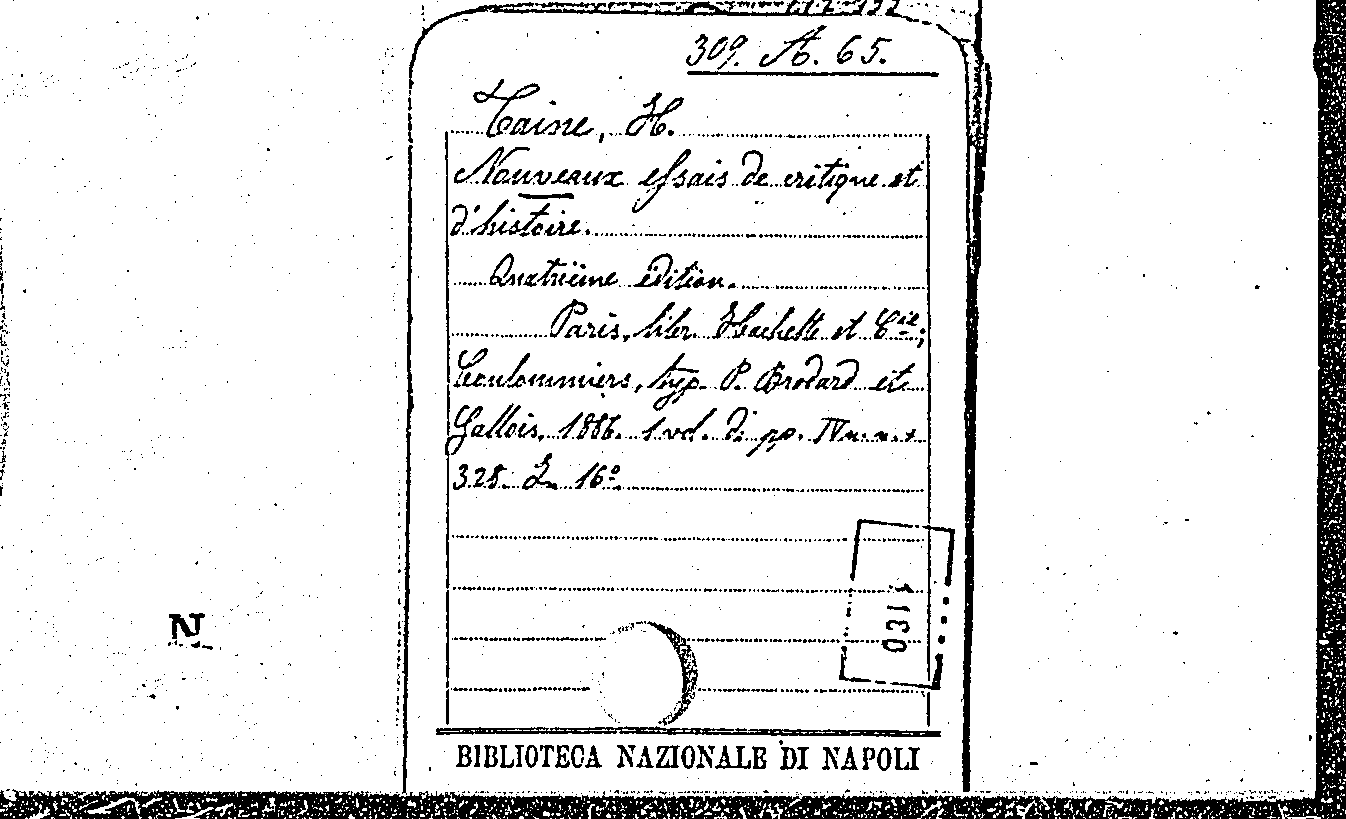 309. A. 65.
Taine, H.
Nouveaux essais de critique et
d'histoire.
Quatrième édition.
Paris, libr. Hachette et Cie;
Coulommiers, typ. P. Brodard et
Gallois, 1886. 1 vol. di pp. IV n. n. +
328. In 16º.
N
BIBLIOTECA NAZIONALE DI NAPOLI